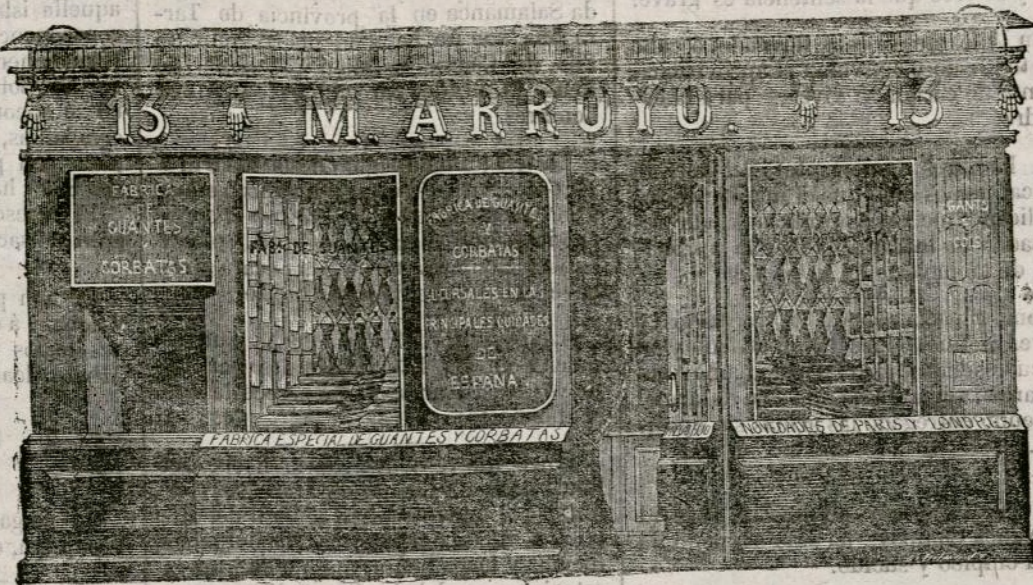 da Salamanca en la provincia de Tar-
13 M. ARROYO. 13
FABRICA
DE
GUANTES
Y
CORBATAS
FABª DE GUANTES
FABRICA DE GUANTES
Y
CORBATAS
SUCURSALES EN LAS
PRINCIPALES CIUDADES
DE
ESPAÑA
GANTS
FABRICA ESPECIAL DE GUANTES Y CORBATAS
NOVEDADES DE PARIS Y LONDRES